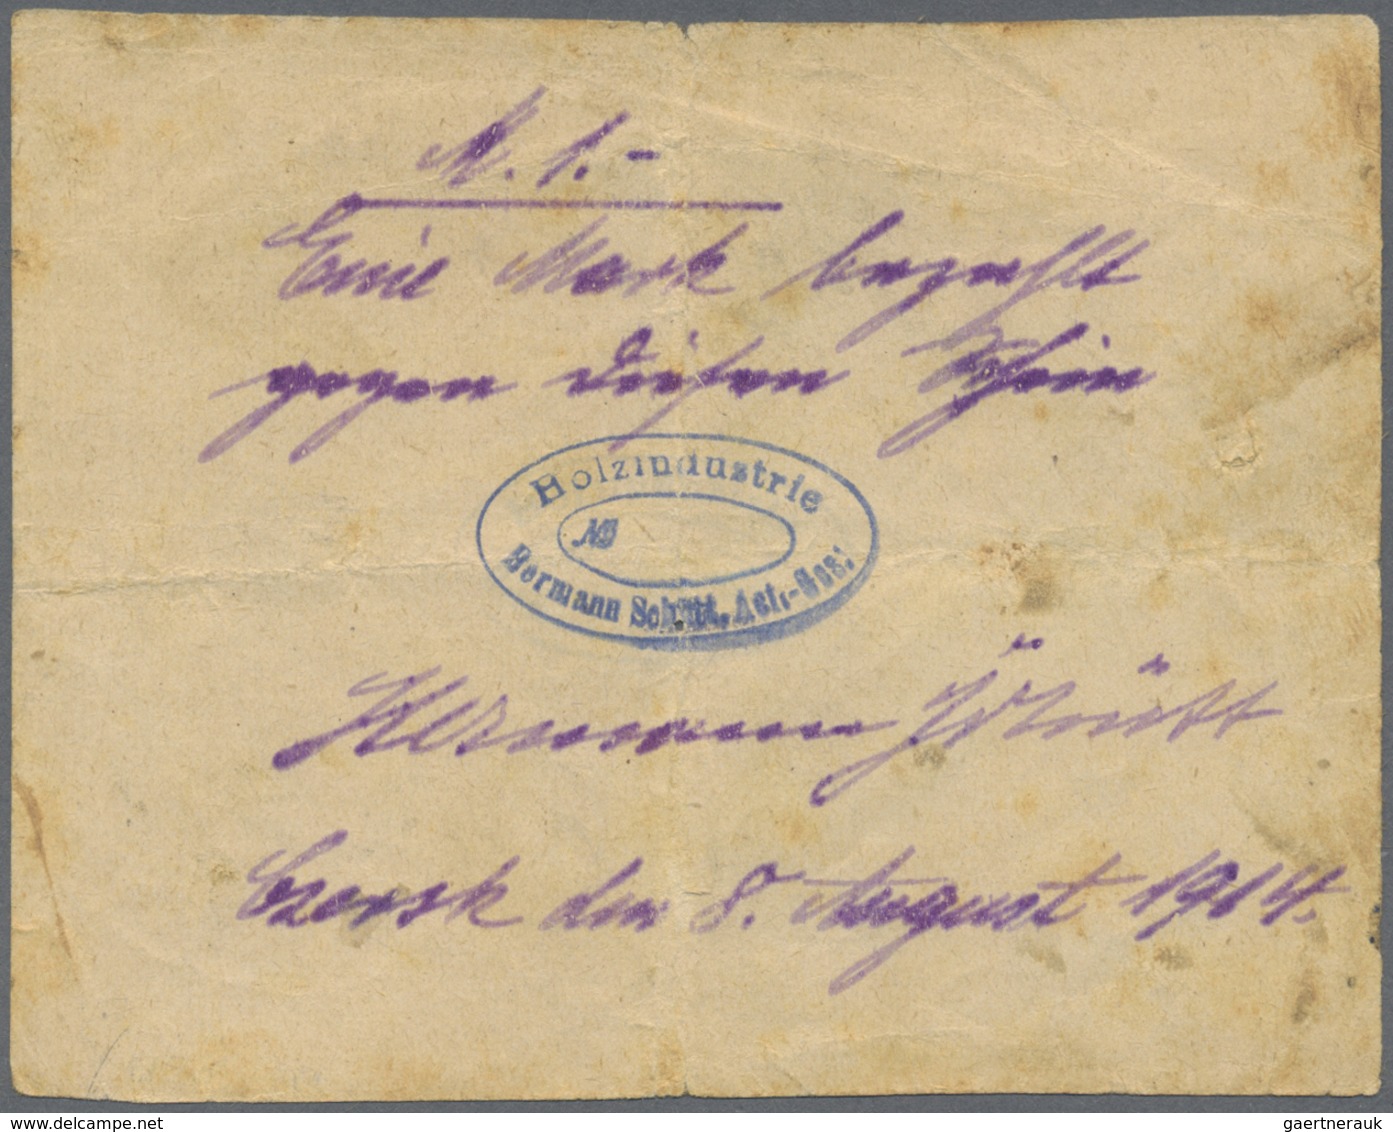 M. 1.-
Eine Mark bezahlt
gegen diesen Schein
Holzindustrie
No
Hermann Schütt, Act.-Ges:
Hermann Schütt
Czersk den 8. August 1914.
gaertnerauk @ delcampe.net